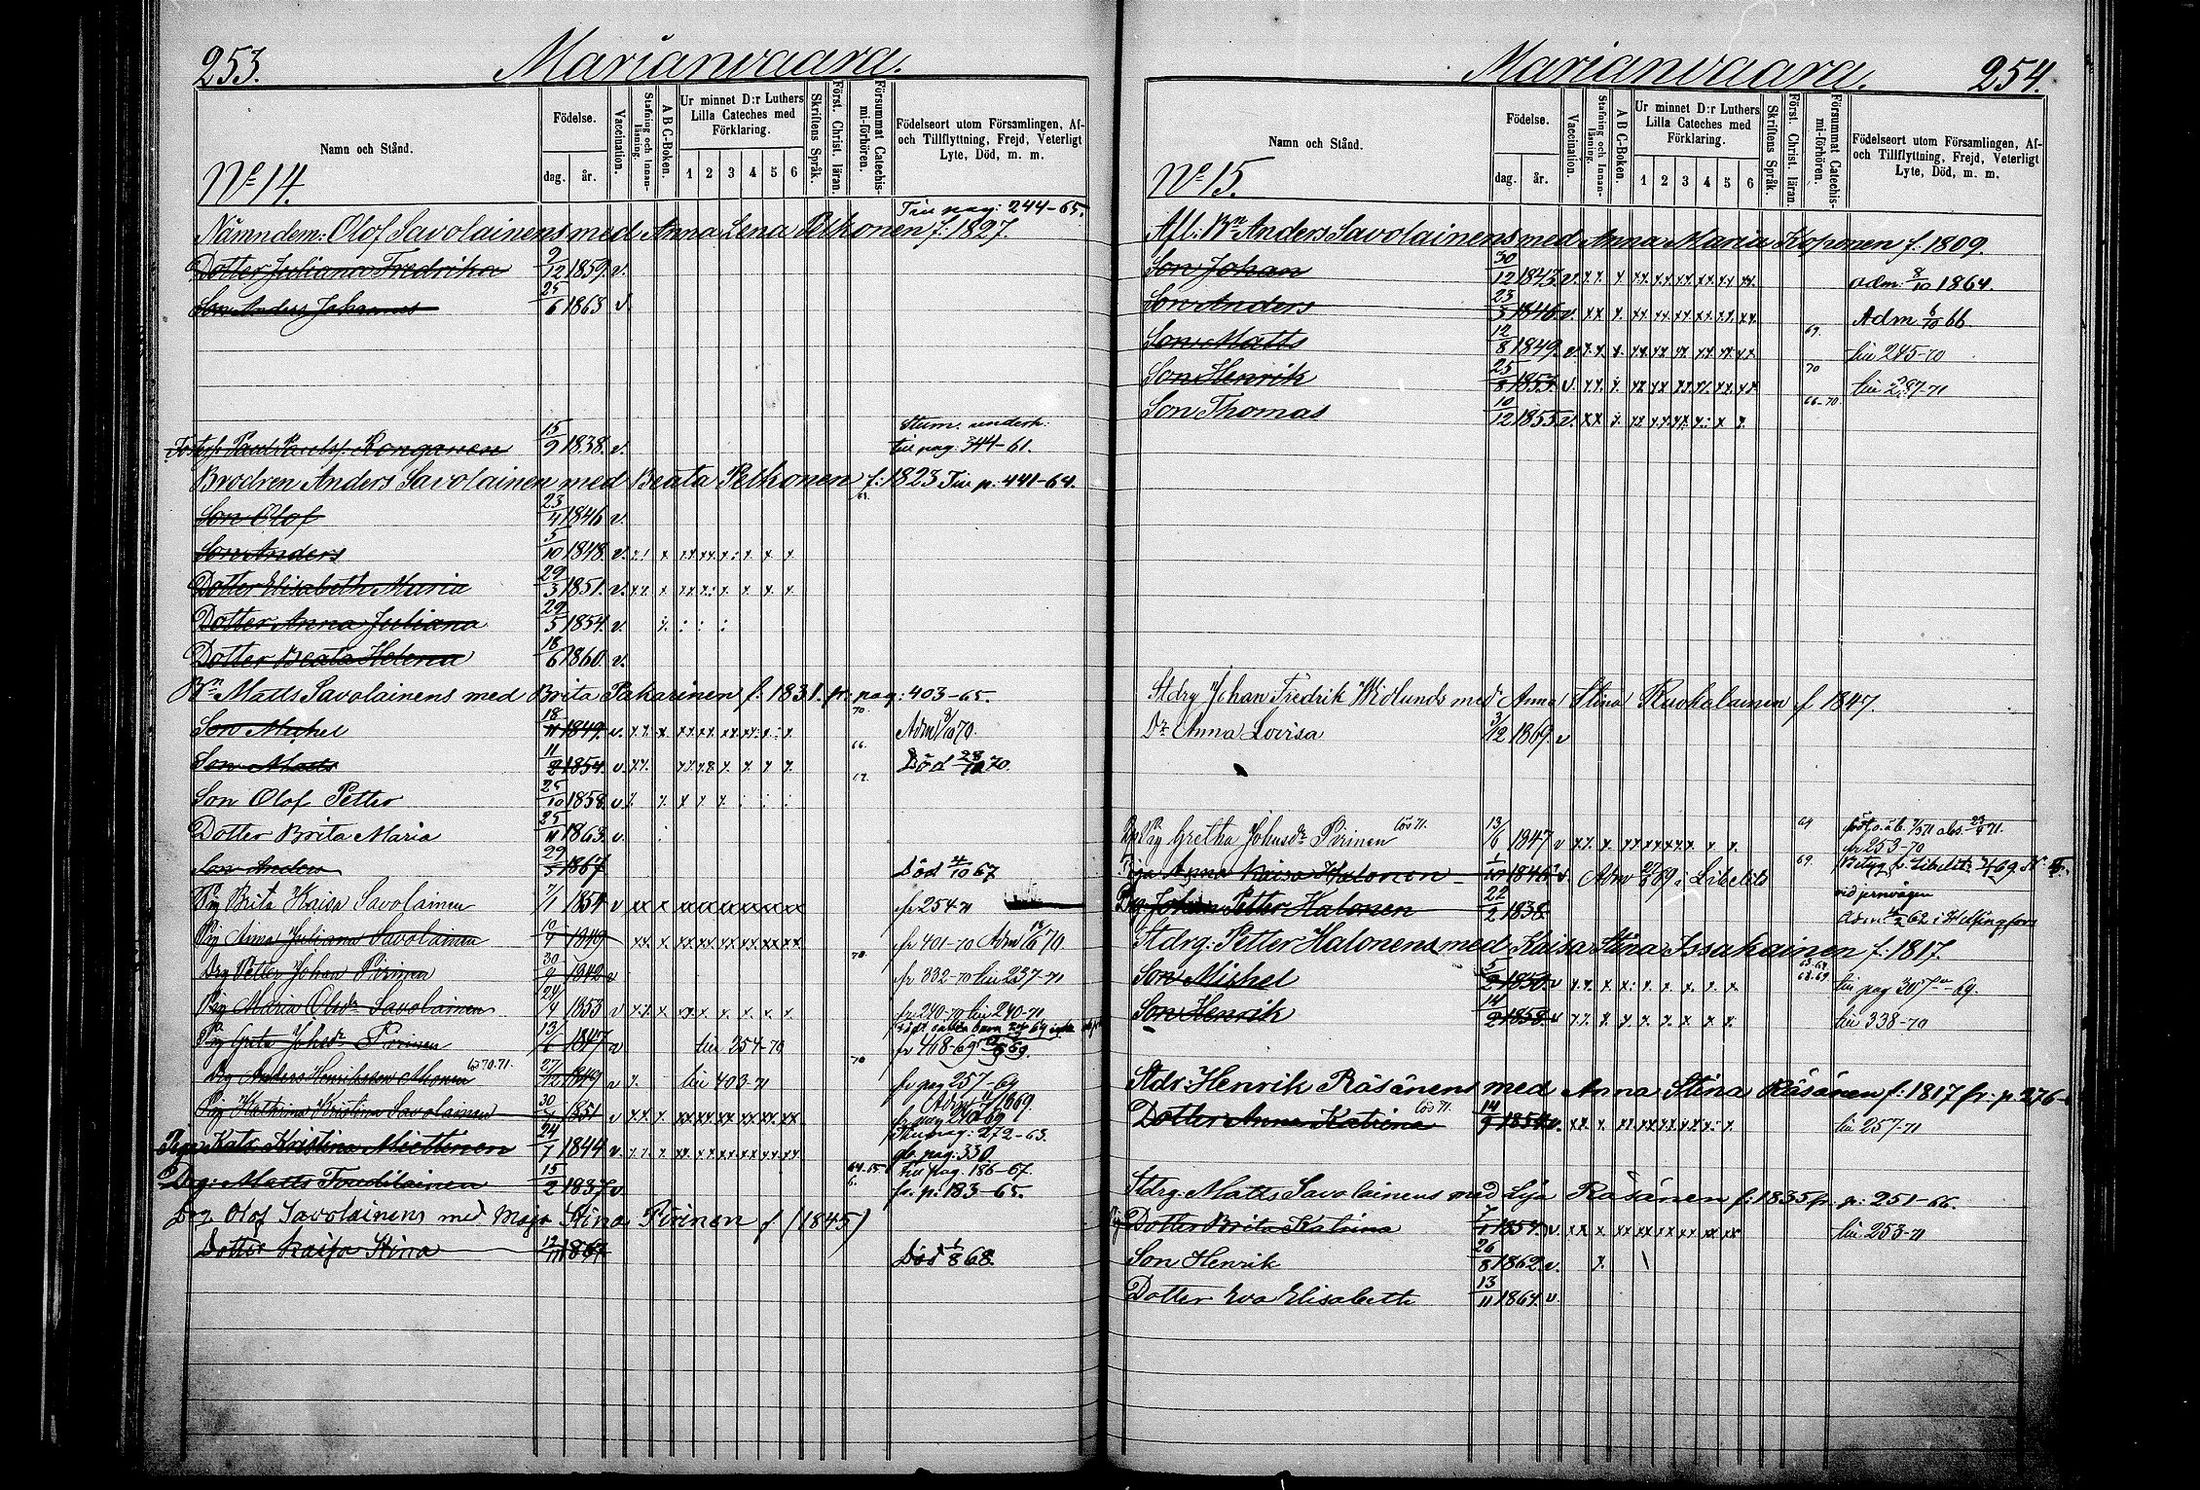 253. Marianvaara.
Namn och Stånd.
Födelse.
dag. år.
Vaccination.
Stafning och Innan-läsning.
A B C-Boken.
Ur minnet D:r Luthers Lilla Cateches med Förklaring.
1 2 3 4 5 6
Skriftens Språk.
Först. Christ. läran.
Försummat Catechis-mi-förhören.
Födelseort utom Församlingen, Af- och Tillflyttning, Frejd, Veterligt Lyte, Död, m. m.
No 14.
Nämndem: Olof Savolainens med Anna Lena Pelkonen f: 1827. Tiu pag: 244-65.
Dotter Juliana Fredrika 9/12 1859. v.
Son Anders Johannes 25/6 1863 v.
Paul Ronganen 15/9 1838. v. Stum. underh: tiu pag: 344-61.
Brodren Anders Savolainen med Beata Pelkonen f: 1823 Tiu p. 441-64.
Son Olof 23/4 1846 v.
Son Anders 5/10 1848. v.
Dotter Elisabeth Maria 29/3 1851. v.
Dotter Anna Juliana 29/5 1854. v.
Dotter Beata Helena 18/6 1860. v.
Bn Matts Savolainens med Brita Pakarinen f: 1831. fr: pag: 403-65.
Son Michel 18/11 1849. v. 70. Adm 9/10 70.
Son Matts 11/2 1854. v. 66. Död 28/10 70.
Son Olof Petter 25/10 1858. v. 67.
Dotter Brita Maria 25/11 1863. v.
Son Anders 29/5 1867 Död 4/10 67
Pig Brita Kaisa Savolainen 7/1 1854 v fr 254-71
Pig Anna Juliana Savolainen 10/4 1849 fr 401-70 Adm 70.
Drg Petter Johan Pirinen 30/4 1842 v 70. fr 332-70 tiu 237-71
Pig Maria Olsdr Savolainen 24/4 1853 v fr 290-70 tiu 240-71
Pig Greta Johsdr Pirinen 13/6 1847 v tiu 254-70 fr 408-69
Drg Anders Henriksson Mononen lös 70.71. 27/12 1849 v tiu 403-71 70 fr pag 257-69
Pig Kathrina Kristina Savolainen 30/4 1851 v
Piga Katr. Kristina Miettinen 24/7 1844 v. Tiu pag: 272-63. fr. pag: 330.
Drg: Matts Turtilainen 15/2 1837 v 64.65 tiu pag. 186-67. fr. p: 183-65.
Drg Olof Savolainens med Maja Stina Pirinen f (1845)
Dotter Kaisa Stina 12/11 1867 Död 1/8 68.
Marianvaara. 254.
Namn och Stånd.
Födelse.
dag. år.
Vaccination.
Stafning och Innan-läsning.
A B C-Boken.
Ur minnet D:r Luthers Lilla Cateches med Förklaring.
1 2 3 4 5 6
Skriftens Språk.
Först. Christ. läran.
Försummat Catechis-mi-förhören.
Födelseort utom Församlingen, Af- och Tillflyttning, Frejd, Veterligt Lyte, Död, m. m.
No 15.
Afl: Bn Anders Savolainens med Anna Maria Koponen f. 1809.
Son Johan 30/12 1843. v. adm: 8/10 1864.
Son Anders 23/3 1846. v. Adm 6/10 66
Son Matts 12/8 1849. v 69. tiu 245-70
Son Henrik 25/8 1853. v. 70 tiu 287-71
Son Thomas 10/12 1855. v. 66-70.
Stdrg Johan Fredrik Widlunds med Anna Stina Ruokolainen f 1847.
Dr Anna Lovisa 3/12 1869. v
Pig Gretha Johnsdr Pirinen lös 71. 13/6 1847 v 69 fr 253-70
Piga Anna Kaisa Halonen v. Adm 69 i Libelits 69.
Drg: Johan Petter Halonen 22/2 1838. vid jernvägen Adm 62 i Helsingfors
Stdrg: Petter Halonens med Kaisa Stina Issakainen f: 1817.
Son Michel 5/2 1850. v 63-64 68.69 tiu pag 307-69.
Son Henrik 14/2 1858. v tiu 338-70
Stdr: Henrik Räsänens med Anna Stina Räsänen f: 1817 fr: p: 276-
Dotter Anna Katrina lös 71. 14/9 1854. v. tiu 257-71
Stdrg: Matts Savolainens med Lisa Räsänen f: 1835 fr: p: 251-66.
Dotter Brita Katrina 7/1 1854. v. tiu 253-71
Son Henrik 26/8 1862. v.
Dotter Eva Elisabeth 13/11 1864. v.